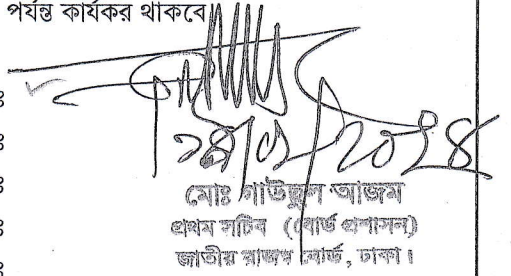 পর্যন্ত কার্যকর থাকবে
ঃ
ঃ
ঃ
ঃ
মোঃ গাউছুল আজম
প্রথম সচিব (বোর্ড প্রশাসন)
জাতীয় রাজস্ব বোর্ড, ঢাকা।